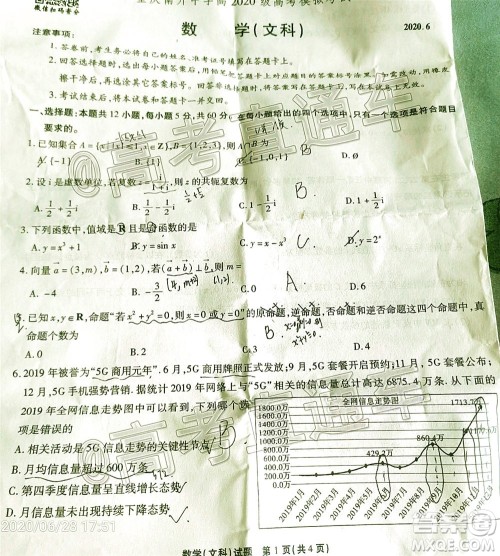 微信扫码看分
重庆南开中学高2020级高考模拟考试
数 学(文科)
2020.6
注意事项:
1.答卷前,考生务必将自己的姓名、准考证号填写在答题卡上.
2.回答选择题时,选出每小题答案后,用铅笔把答题卡上对应题目的答案标号涂黑.如需改动,用橡皮
擦干净后,再选涂其它答案标号.回答非选择题时,将答案写在答题卡上,写在本试卷上无效.
3.考试结束后,将本试卷和答题卡一并交回.
一、选择题:本题共12小题,每小题5分,共60分.在每小题给出的四个选项中,只有一个选项是符合题目
要求的.
1.已知集合A={x||x|≤1,x∈Z},B={1,2,3},则A∩B为
A.{-1} B.{1} C.{-1,0,1} D.∅
2.设i是虚数单位,若复数z=
,则z的共轭复数为
A.1/2+1/2 i B.1/2-1/2 i C.1-1/2 i D.1+1/2 i
B
3.下列函数中,值域是R且是
函数的是
A.y=x³+1 B.y=sin x C.y=x-x³ D.y=2ˣ
C.
4.向量a=(3,m),b=(1,2),若(a+b)⊥b,则m=
A.-4 B.
C. D.6
A
5.已知x,y∈R,命题“若x²+y²=0,则x=0或y=0”的原命题,逆命题,否命题和逆否命题这四个命题中,真
命题个数为
A.0 B.2 C.3 D.4
6.2019年被誉为“5G商用元年”.6月,5G商用牌照正式发布;9月,5G套餐开启预约;11月,5G套餐公布;
12月,5G手机强势营销.据统计2019年网络上与“5G”相关的信息量总计高达6875.4万条,从下面的
2019年全网信息走势图中可以看到,下列哪个选
项是错误的
B
A.相关活动是5G信息走势的关键性节点
B.月均信息量超过600万条
C.第四季度信息量呈直线增长态势
D.月信息量未出现持续下降态势
全网信息走势图
1800.0万
1600.0万
1400.0万
1200.0万
1000.0万
800.0万
600.0万
400.0万
200.0万
0.0万
429.2万
860.4万
1713.7万
2019年1月
2019年2月
2019年3月
2019年4月
2019年5月
2019年6月
2019年7月
2019年8月
2019年9月
2019年10月
2019年11月
2019年12月
@高考直通车
@高考直通车
2020/06/28 17:51
数学(文科)试题 第1页(共4页)
答案圈
MXQE.COM